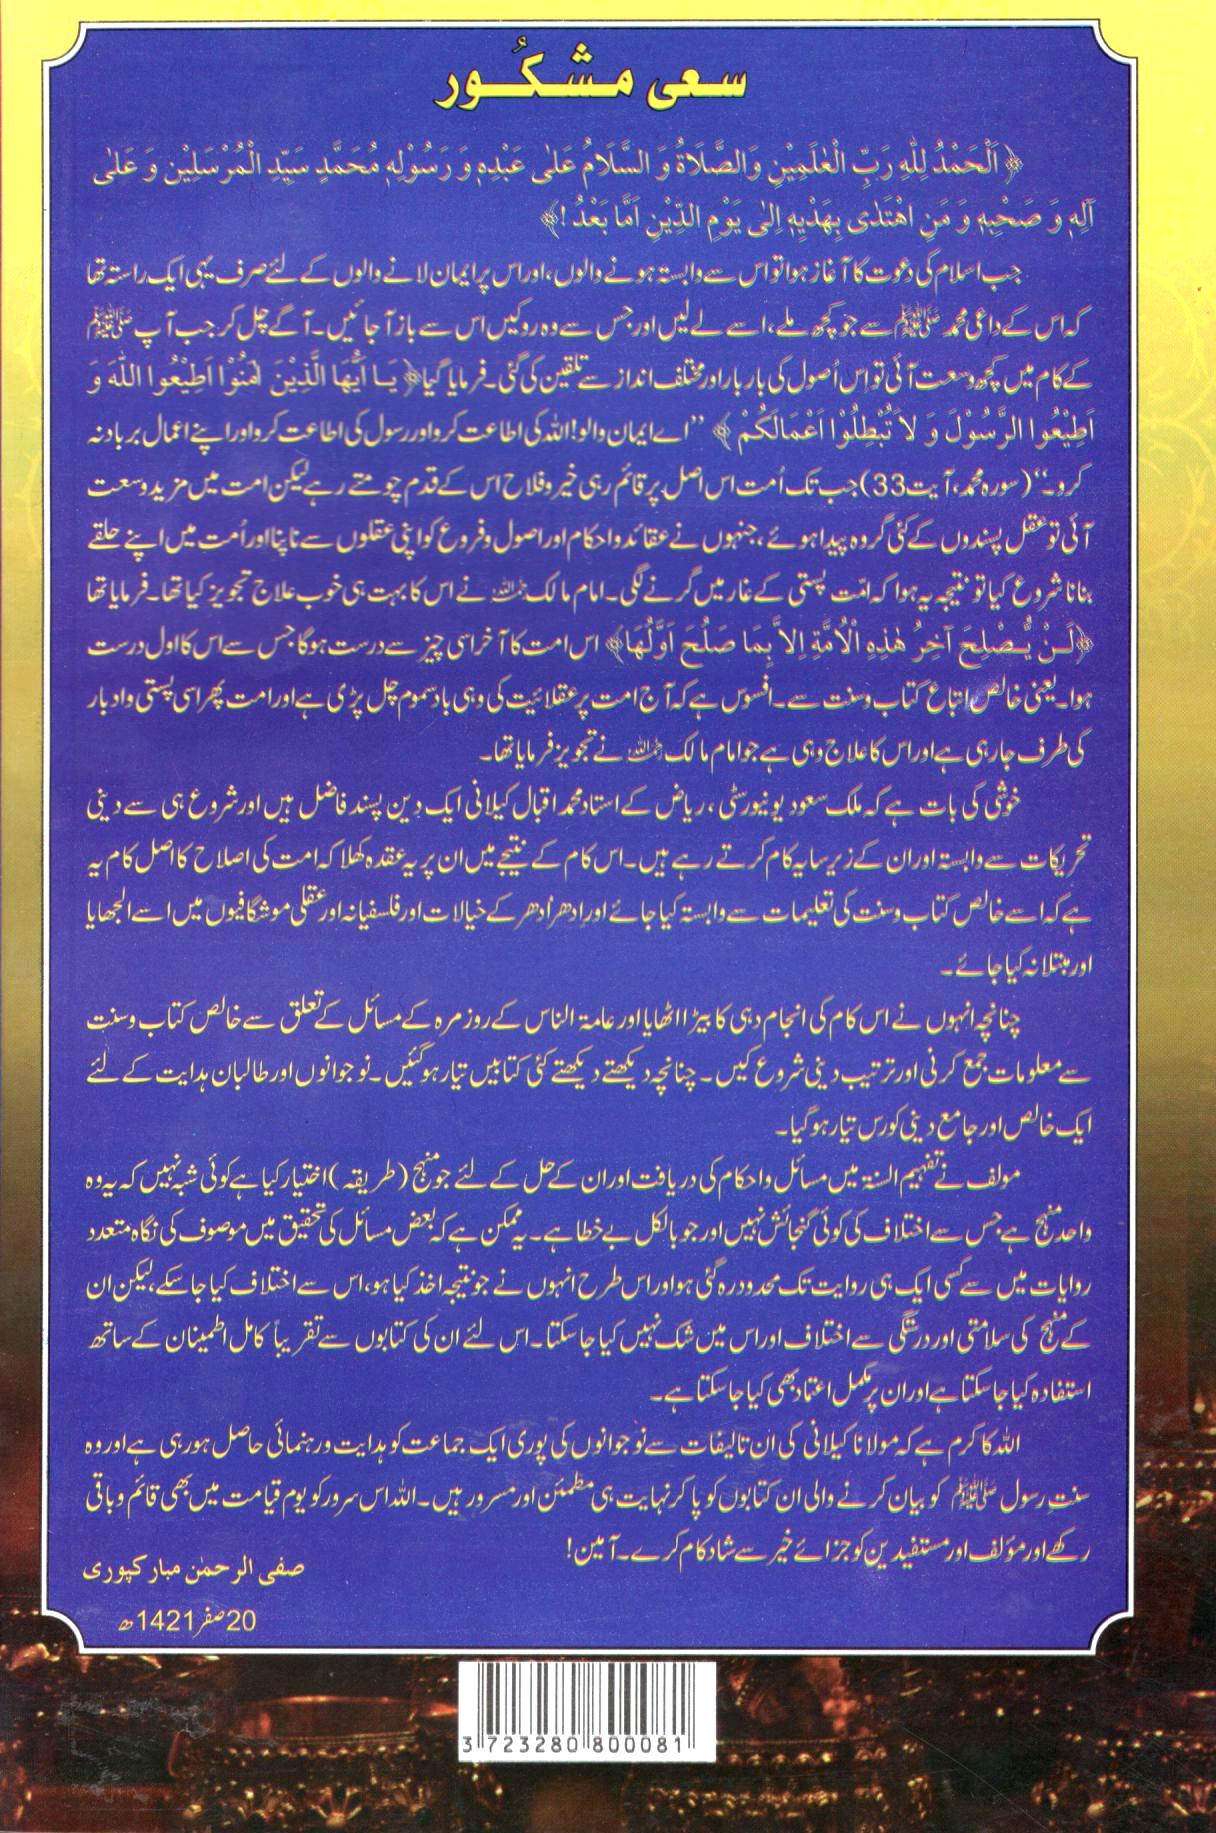 سعی مشکُور
﴿ اَلْحَمْدُ لِلّٰهِ رَبِّ الْعٰلَمِیْنَ وَالصَّلَاةُ وَ السَّلَامُ عَلٰی عَبْدِهٖ وَ رَسُوْلِهٖ مُحَمَّدٍ سَیِّدِ الْمُرْسَلِیْنَ وَ عَلٰی
آلِهٖ وَ صَحْبِهٖ وَ مَنِ اهْتَدٰی بِهَدْیِهٖ اِلٰی یَوْمِ الدِّیْنِ اَمَّا بَعْدُ !﴾
جب اسلام کی دعوت کا آغاز ہوا تو اس سے وابستہ ہونے والوں، اور اس پر ایمان لانے والوں کے لئے صرف یہی ایک راستہ تھا
کہ اس کے داعی محمد ﷺ سے جو کچھ ملے، اسے لے لیں اور جس سے وہ روکیں اس سے باز آ جائیں۔ آگے چل کر جب آپ ﷺ
کے کام میں کچھ وسعت آئی تو اس اُصول کی بار بار اور مختلف انداز سے تلقین کی گئی۔ فرمایا گیا ﴿ یَا اَیُّهَا الَّذِیْنَ اٰمَنُوْا اَطِیْعُوا اللّٰهَ وَ
اَطِیْعُوا الرَّسُوْلَ وَ لاَ تُبْطِلُوْا اَعْمَالَکُمْ ﴾ ’’اے ایمان والو! اللہ کی اطاعت کرو اور رسول کی اطاعت کرو اور اپنے اعمال برباد نہ
کرو۔‘‘ (سورہ محمد، آیت 33) جب تک اُمت اس اصل پر قائم رہی خیر و فلاح اس کے قدم چومتے رہے لیکن امت میں مزید وسعت
آئی تو عقل پسندوں کے کئی گروہ پیدا ہوئے، جنہوں نے عقائد و احکام اور اصول و فروع کو اپنی عقلوں سے ناپنا اور اُمت میں اپنے حلقے
بنانا شروع کیا تو نتیجہ یہ ہوا کہ امّت پستی کے غار میں گرنے لگی۔ امام مالک رحمہ اللہ نے اس کا بہت ہی خوب علاج تجویز کیا تھا۔ فرمایا تھا
﴿لَـنْ یُّـصْلِحَ آخِرُ هٰذِهِ الْاُمَّةِ اِلاَّ بِمَا صَلُحَ اَوَّلُهَا﴾ اس امت کا آخر اسی چیز سے درست ہوگا جس سے اس کا اول درست
ہوا۔ یعنی خالص اتباع کتاب و سنت سے۔ افسوس ہے کہ آج امت پر عقلائیت کی وہی بادسموم چل پڑی ہے اور امت پھر اسی پستی و ادبار
کی طرف جا رہی ہے اور اس کا علاج وہی ہے جو امام مالک رحمہ اللہ نے تجویز فرمایا تھا۔
خوشی کی بات ہے کہ ملک سعود یونیورسٹی، ریاض کے استاد محمد اقبال کیلانی ایک دین پسند فاضل ہیں اور شروع ہی سے دینی
تحریکات سے وابستہ اور ان کے زیر سایہ کام کرتے رہے ہیں۔ اس کام کے نتیجے میں ان پر یہ عقدہ کھلا کہ امت کی اصلاح کا اصل کام یہ
ہے کہ اسے خالص کتاب و سنت کی تعلیمات سے وابستہ کیا جائے اور اِدھر اُدھر کے خیالات اور فلسفیانہ اور عقلی موشگافیوں میں اسے الجھایا
اور مبتلا نہ کیا جائے۔
چنانچہ انہوں نے اس کام کی انجام دہی کا بیڑا اٹھایا اور عامۃ الناس کے روز مرہ کے مسائل کے تعلق سے خالص کتاب و سنت
سے معلومات جمع کرنی اور ترتیب دینی شروع کیں۔ چنانچہ دیکھتے دیکھتے کئی کتابیں تیار ہو گئیں۔ نوجوانوں اور طالبان ہدایت کے لئے
ایک خالص اور جامع دینی کورس تیار ہو گیا۔
مولف نے تفہیم السنۃ میں مسائل و احکام کی دریافت اور ان کے حل کے لئے جو منہج (طریقہ) اختیار کیا ہے کوئی شبہ نہیں کہ یہ وہ
واحد منہج ہے جس سے اختلاف کی کوئی گنجائش نہیں اور جو بالکل بے خطا ہے۔ یہ ممکن ہے کہ بعض مسائل کی تحقیق میں موصوف کی نگاہ متعدد
روایات میں سے کسی ایک ہی روایت تک محدود رہ گئی ہو اور اس طرح انہوں نے جو نتیجہ اخذ کیا ہو، اس سے اختلاف کیا جا سکے، لیکن ان
کے منہج کی سلامتی اور درستگی سے اختلاف اور اس میں شک نہیں کیا جا سکتا۔ اس لئے ان کی کتابوں سے تقریباً کامل اطمینان کے ساتھ
استفادہ کیا جا سکتا ہے اور ان پر مکمل اعتماد بھی کیا جا سکتا ہے۔
اللہ کا کرم ہے کہ مولانا کیلانی کی ان تالیفات سے نوجوانوں کی پوری ایک جماعت کو ہدایت و رہنمائی حاصل ہو رہی ہے اور وہ
سنتِ رسول ﷺ کو بیان کرنے والی ان کتابوں کو پا کر نہایت ہی مطمئن اور مسرور ہیں۔ اللہ اس سرور کو یوم قیامت میں بھی قائم و باقی
رکھے اور مؤلف اور مستفیدین کو جزائے خیر سے شاد کام کرے۔ آمین!
صفی الرحمٰن مبارکپوری
20 صفر 1421ھ
3 723280 800081